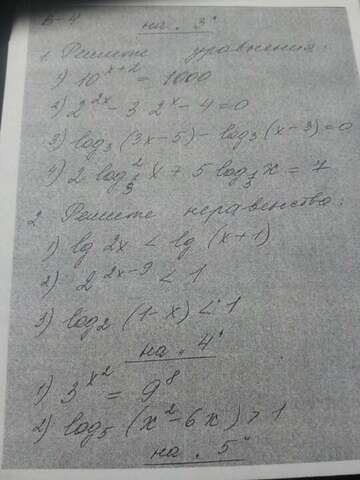 В-4
на "3"
1. Решите уравнения:
1) 10^{x+2} = 1000
2) 2^{2x} - 3 2^x - 4 = 0
3) log_3 (3x-5) - log_3 (x-3) = 0
4) 2 log_3^2 x + 5 log_3 x = 7
2. Решите неравенства:
1) lg 2x < lg (x+1)
2) 2^{2x-9} < 1
3) log_2 (1-x) < 1
на "4"
1) 3^{x^2} = 9^8
2) log_5 (x^2-6x) > 1
на "5"